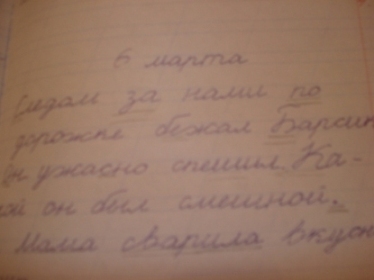 6 марта
Следом за нами по
дорожке бежал Барсик
Он ужасно спешил. Ка-
кой он был смешной.
Мама сварила вкусн